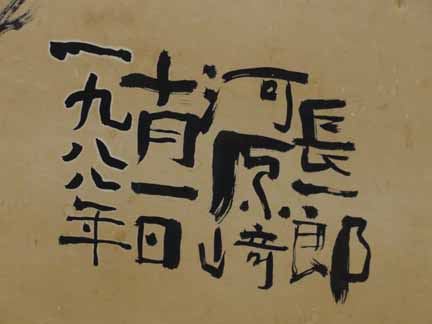 一九八八年
十一月一日
河原崎
長一郎